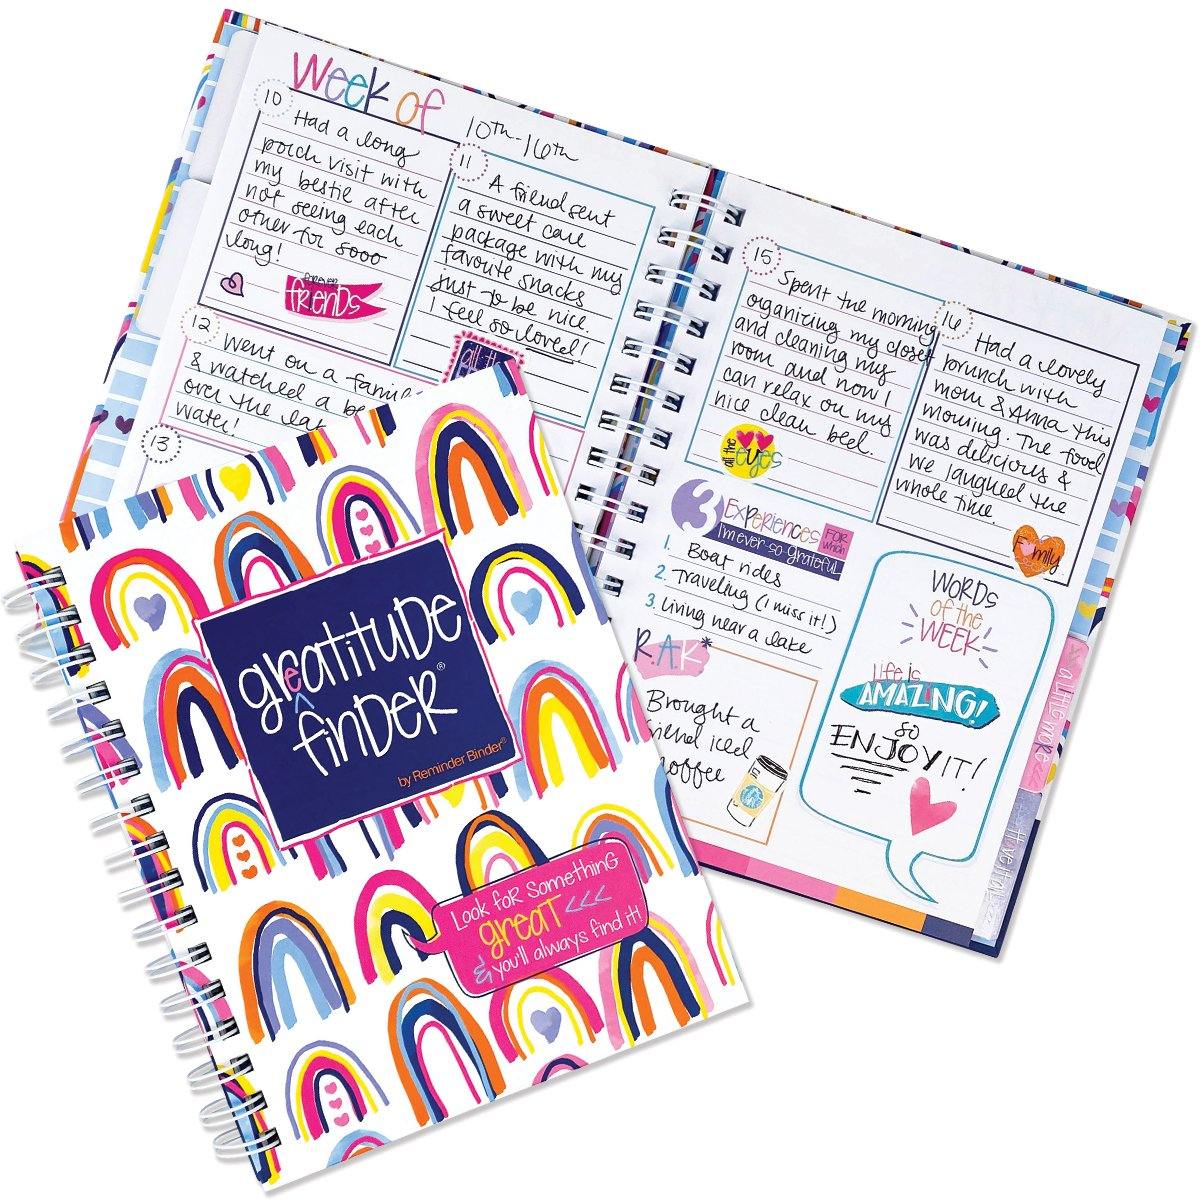 Week of
10th-16th
10
Had a long
porch visit with
my bestie after
not seeing each
other for sooo
long!
forever
friends
11
A friend sent
a sweet care
package with my
favorite snacks
just to be nice.
I feel so loved!
all the
12
Went on a family
& watched a
over the
water!
13
15
Spent the morning
organizing my closet
and cleaning my
room and now I
can relax on my
nice clean bed.
all the
eyes
16
Had a lovely
brunch with
mom & Anna this
morning. The food
was delicious &
we laughed the
whole time.
Family
3 Experiences FOR which
I'm ever-so grateful
1. Boat rides
2. Traveling (I miss it!)
3. Living near a lake
R.A.K*
Brought a
friend iced
coffee
WORDS
of the
WEEK
life is
AMAZING!
so
ENJOY IT!
a little more
greatitude
finder®
by Reminder Binder®
Look for something
great <<<
& you'll always find it!